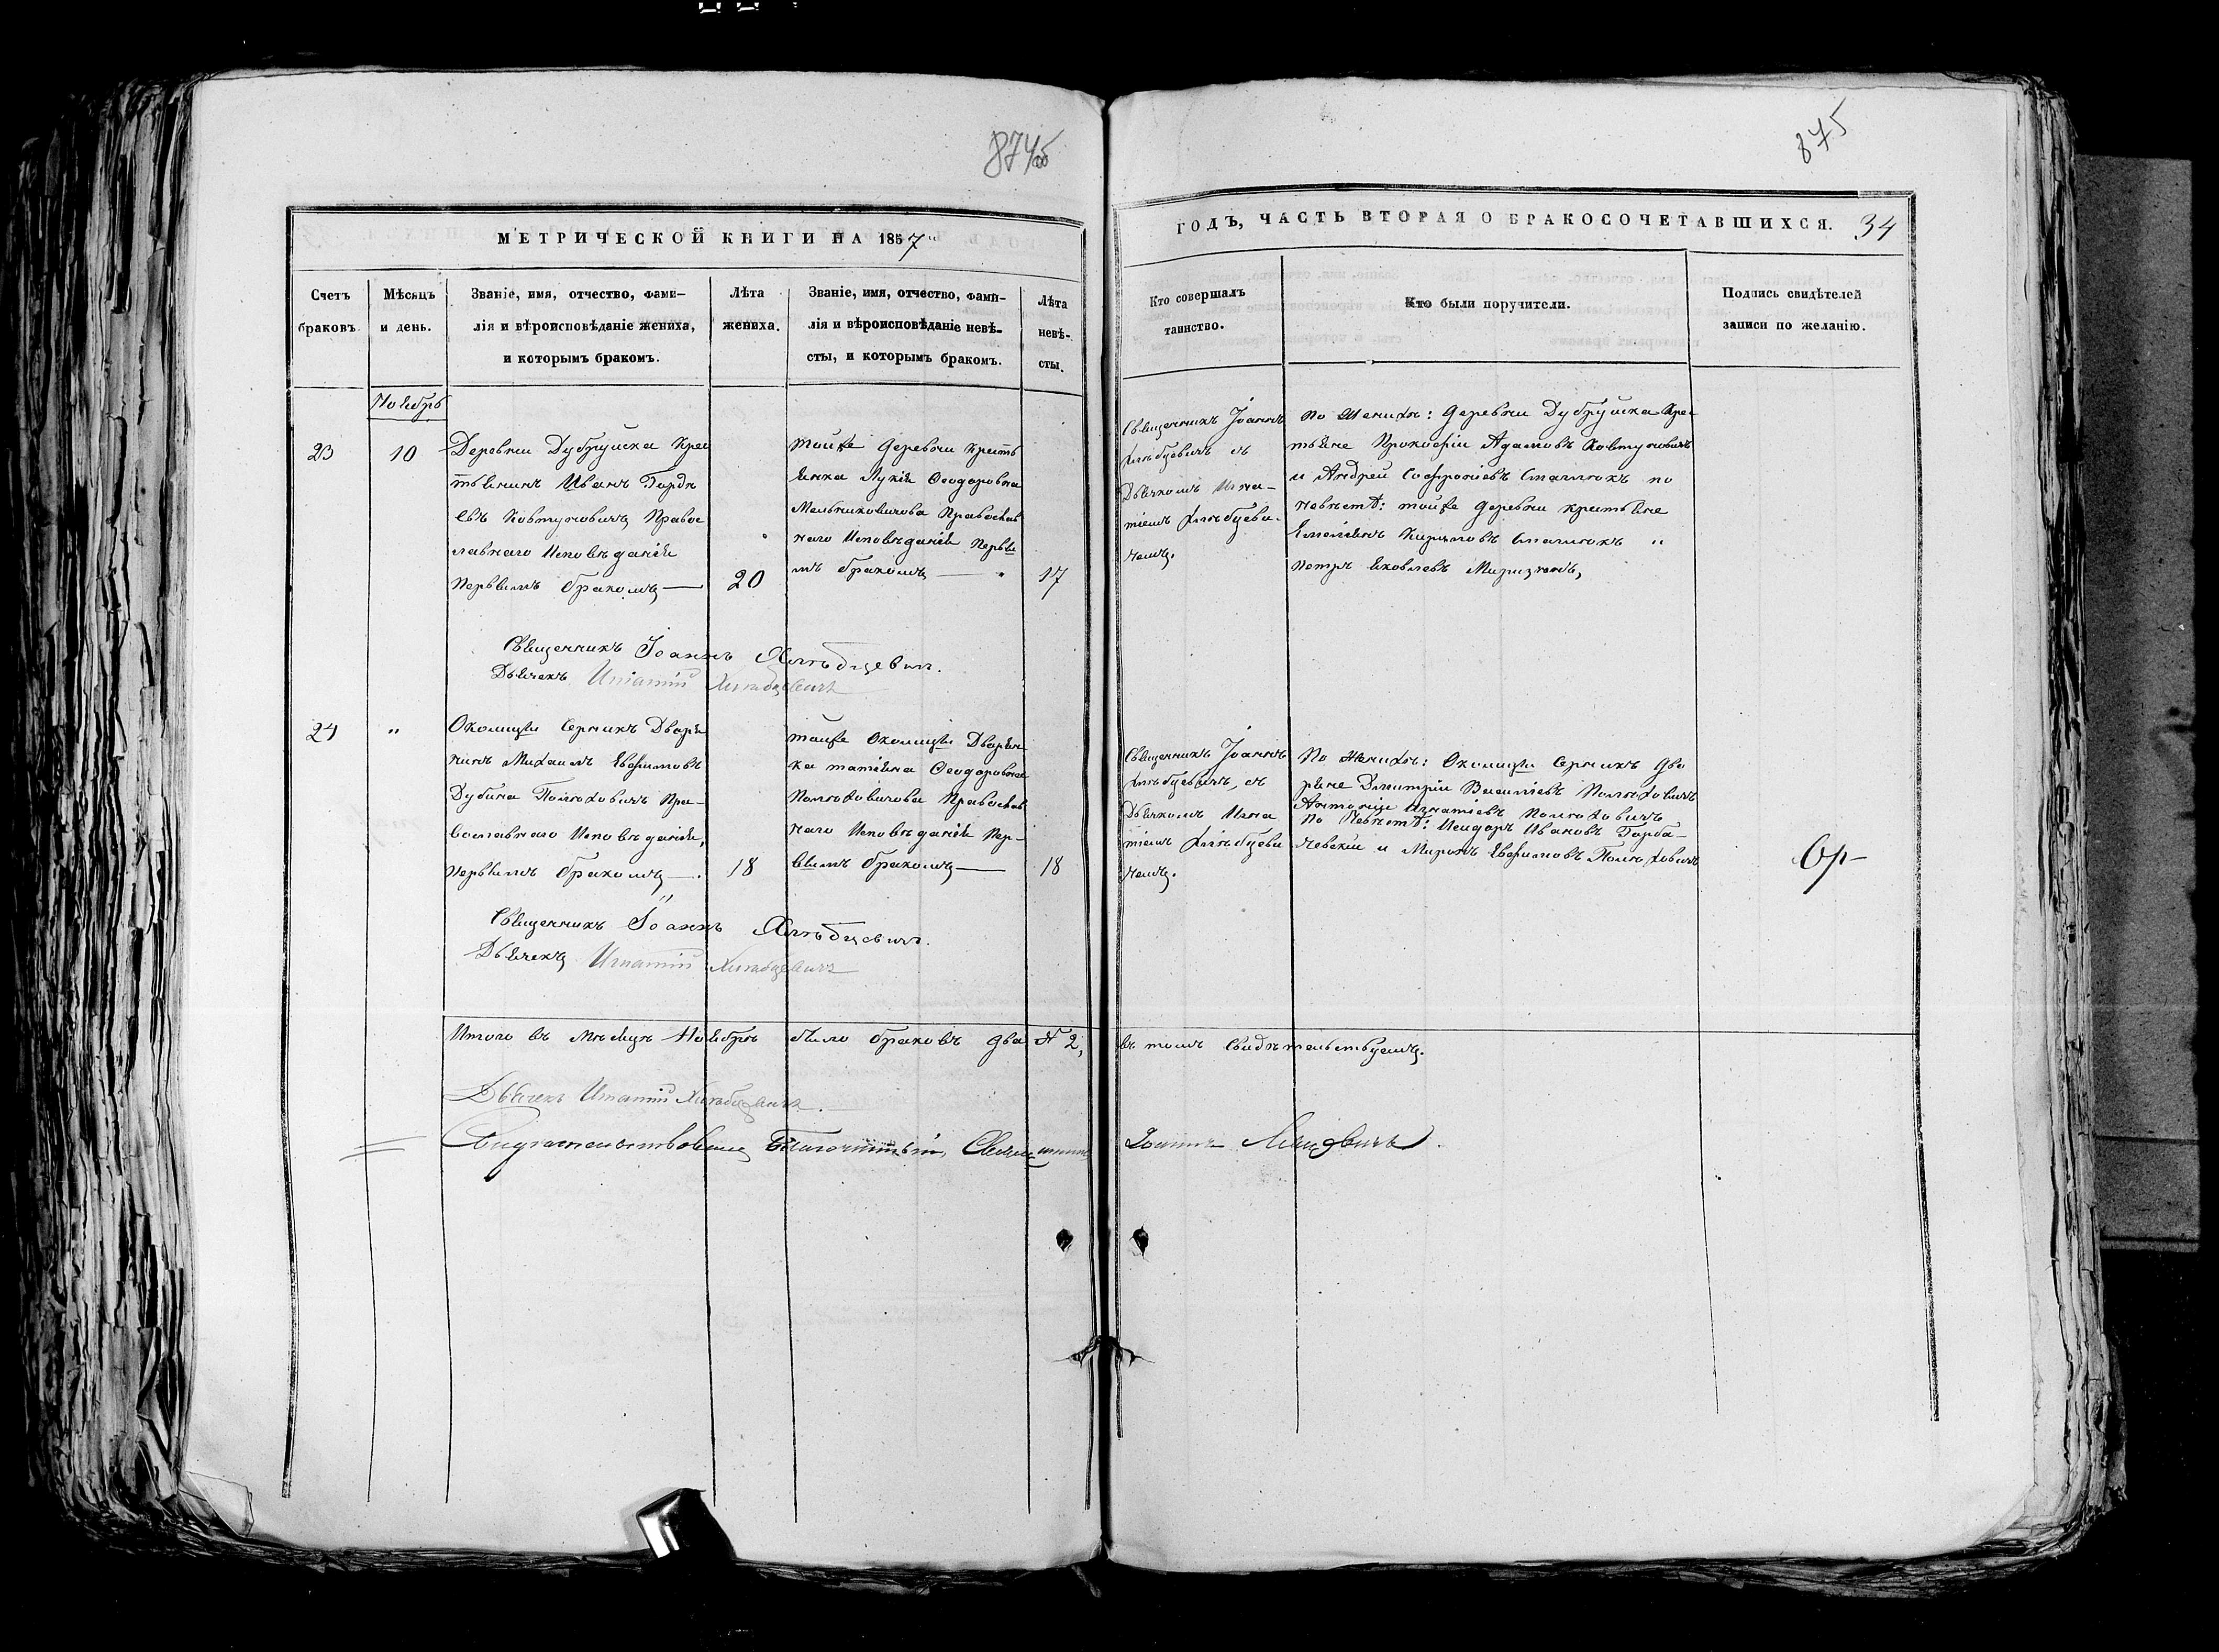 874об
875
МЕТРИЧЕСКОЙ КНИГИ НА 1857
ГОДЪ, ЧАСТЬ ВТОРАЯ О БРАКОСОЧЕТАВШИХСЯ. 34
Счетъ
браковъ.
Мѣсяцъ
и день.
Званіе, имя, отчество, фами-
лія и вѣроисповѣданіе жениха,
и которымъ бракомъ.
Лѣта
жениха.
Званіе, имя, отчество, фами-
лія и вѣроисповѣданіе невѣ-
сты, и которымъ бракомъ.
Лѣта
невѣ-
сты.
Кто совершалъ
таинство.
Кто были поручители.
Подпись свидѣтелей
записи по желанію.
Ноябрь
23
10
Деревни Дубруйска Крес
тьянинъ Иванъ Гордѣ
евъ Ковтуновичъ Правос
лавнаго Исповѣданія
первымъ бракомъ
20
тойже деревни Крестья
янка Лукія Ѳеодоровна
Мельниковичова Православ
наго Исповѣданія первы
мъ бракомъ
17
Священникъ Іоаннъ
Хлѣбцевичъ съ
Дьячкомъ Игна-
тіемъ Хлѣбцеви-
чемъ.
По Женихѣ: деревни Дубруйска Крес
тьяне Прокофій Адамовъ Ковтуновичъ
и Андрей Софроніевъ по
невѣстѣ: тойже деревни крестьяне
Емеліянъ
Петръ Яковлевъ
Священникъ Іоаннъ Хлѣбцевичъ.
Дьячекъ Игнатій Хлѣбцевичъ
24
"
Околицы Серникъ Дворя
нинъ Михаилъ Евфимовъ
Дубина Полюховичъ Пра-
вославнаго Исповѣданія,
первымъ бракомъ
18
тойже Околицы Дворян
ка Татіяна Ѳеодоровна
Полюховичова Православ
наго Исповѣданія пер-
вымъ бракомъ
18
Священникъ Іоаннъ
Хлѣбцевичъ, съ
Дьячкомъ Игна
тіемъ Хлѣбцеви
чемъ.
По Женихѣ: Околицы Серникъ дво
ряне Димитрій Василіевъ Полюховичъ
Антоній Игнатіевъ Полюховичъ
По Невѣстѣ: Исидоръ Ивановъ Горба-
чевскій и Миронъ Евфимовъ Полюховичъ
Священникъ Іоаннъ Хлѣбцевичъ.
Дьячекъ Игнатій Хлѣбцевичъ
Итого въ мѣсяцѣ Ноябрѣ было браковъ два № 2, въ томъ свидѣтельствуемъ.
Дьячекъ Игнатій Хлѣбцевичъ.
Свидѣтельствовалъ Благочинный, Священникъ Іоаннъ